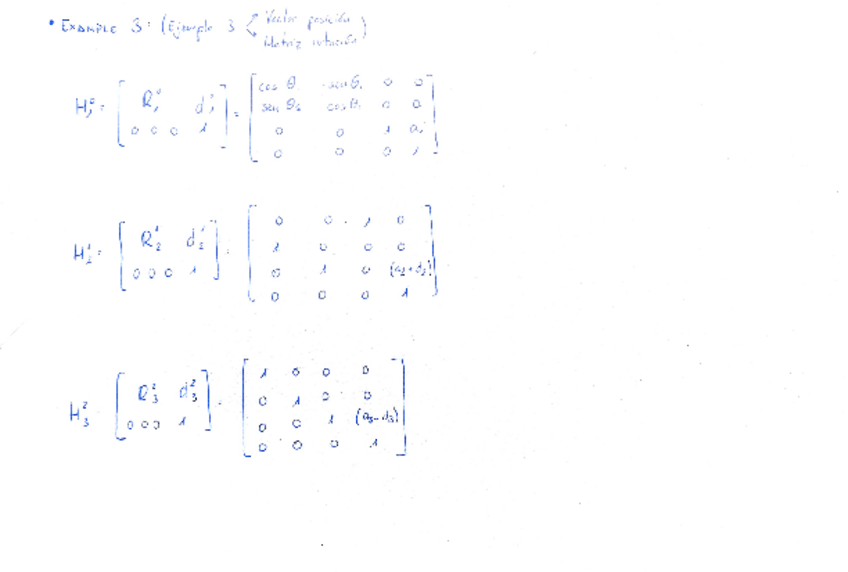 • EXAMPLE 3: (Ejemplo 3 < Vector posición
Matriz rotación)
H₁⁰ = [ R₁⁰ d₁⁰ ] = [ cos θ₁ -sen θ₁ 0 0
sen θ₁ cos θ₁ 0 0
0 0 0 1 0 0 1 a₁
0 0 0 1 ]
H₂¹ = [ R₂¹ d₂¹ ] = [ 0 0 1 0
1 0 0 0
0 0 0 1 0 1 0 (a₂+d₂)
0 0 0 1 ]
H₃² = [ R₃² d₃² ] = [ 1 0 0 0
0 1 0 0
0 0 0 1 0 0 1 (a₃+d₃)
0 0 0 1 ]